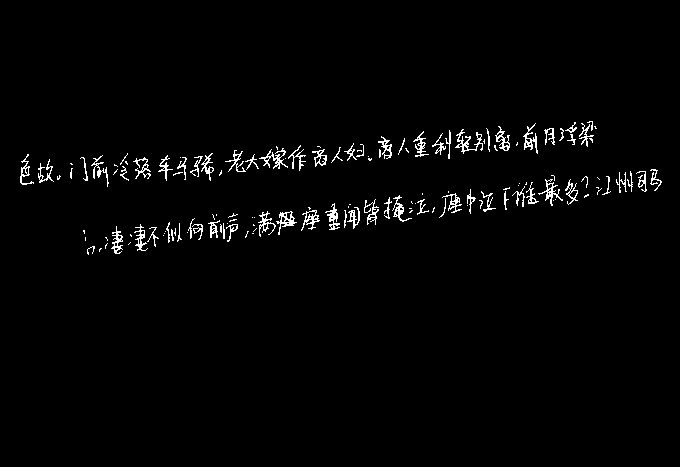 色故。门前冷落车马稀,老大嫁作商人妇。商人重利轻别离,前月浮梁
凄凄不似向前声,满座重闻皆掩泣,座中泣下谁最多?江州司马